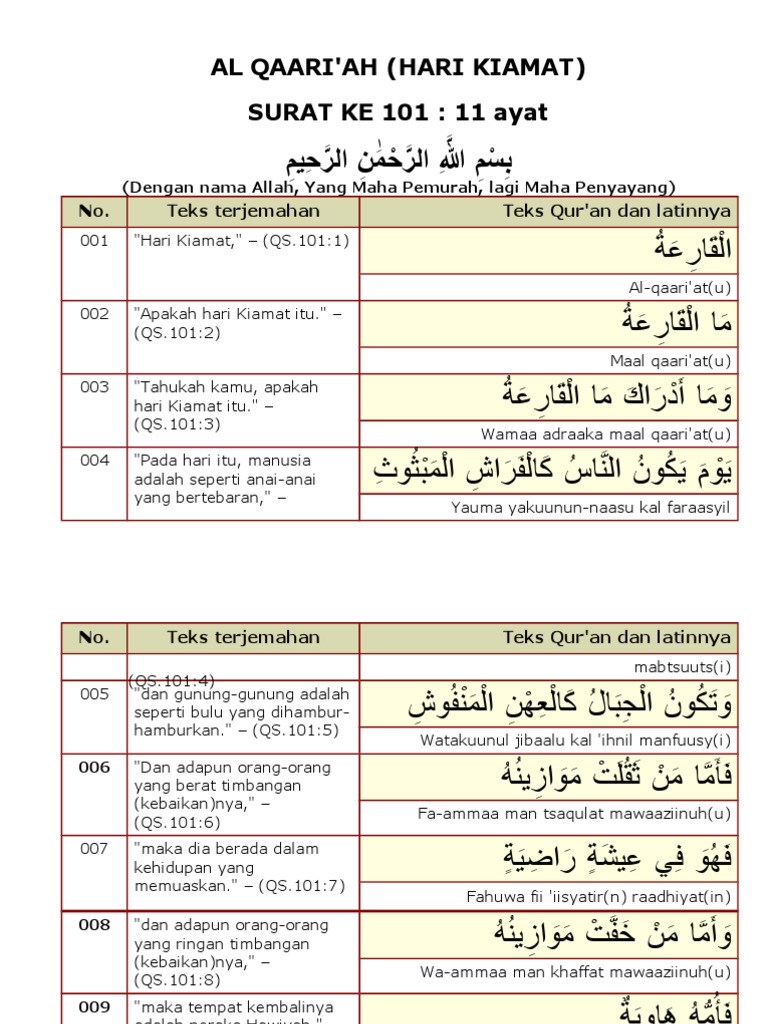 AL QAARI'AH (HARI KIAMAT)
SURAT KE 101 : 11 ayat
بِسْمِ اللَّهِ الرَّحْمَٰنِ الرَّحِيمِ
(Dengan nama Allah, Yang Maha Pemurah, lagi Maha Penyayang)
No. Teks terjemahan Teks Qur'an dan latinnya
001 "Hari Kiamat," – (QS.101:1)
الْقَارِعَةُ
Al-qaari'at(u)
002 "Apakah hari Kiamat itu." –
(QS.101:2)
مَا الْقَارِعَةُ
Maal qaari'at(u)
003 "Tahukah kamu, apakah
hari Kiamat itu." –
(QS.101:3)
وَمَا أَدْرَاكَ مَا الْقَارِعَةُ
Wamaa adraaka maal qaari'at(u)
004 "Pada hari itu, manusia
adalah seperti anai-anai
yang bertebaran," –
يَوْمَ يَكُونُ النَّاسُ كَالْفَرَاشِ الْمَبْثُوثِ
Yauma yakuunun-naasu kal faraasyil
No. Teks terjemahan Teks Qur'an dan latinnya
(QS.101:4)
mabtsuuts(i)
005 "dan gunung-gunung adalah
seperti bulu yang dihambur-
hamburkan." – (QS.101:5)
وَتَكُونُ الْجِبَالُ كَالْعِهْنِ الْمَنْفُوشِ
Watakuunul jibaalu kal 'ihnil manfuusy(i)
006 "Dan adapun orang-orang
yang berat timbangan
(kebaikan)nya," –
(QS.101:6)
فَأَمَّا مَنْ ثَقُلَتْ مَوَازِينُهُ
Fa-ammaa man tsaqulat mawaaziinuh(u)
007 "maka dia berada dalam
kehidupan yang
memuaskan." – (QS.101:7)
فَهُوَ فِي عِيشَةٍ رَاضِيَةٍ
Fahuwa fii 'iisyatir(n) raadhiyat(in)
008 "dan adapun orang-orang
yang ringan timbangan
(kebaikan)nya," –
(QS.101:8)
وَأَمَّا مَنْ خَفَّتْ مَوَازِينُهُ
Wa-ammaa man khaffat mawaaziinuh(u)
009 "maka tempat kembalinya
adalah neraka Hawiyah." 
فَأُمُّهُ هَاوِيَةٌ